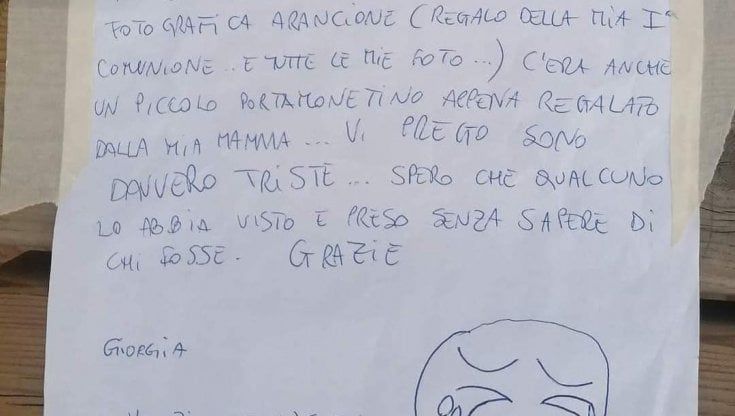 FOTOGRAFICA ARANCIONE (REGALO DELLA MIA Iª
COMUNIONE... E TUTTE LE MIE FOTO...) C'ERA ANCHE
UN PICCOLO PORTAMONETINO APPENA REGALATO
DALLA MIA MAMMA... VI PREGO SONO
DAVVERO TRISTE... SPERO CHE QUALCUNO
LO ABBIA VISTO E PRESO SENZA SAPERE DI
CHI FOSSE. GRAZIE
GIORGIA